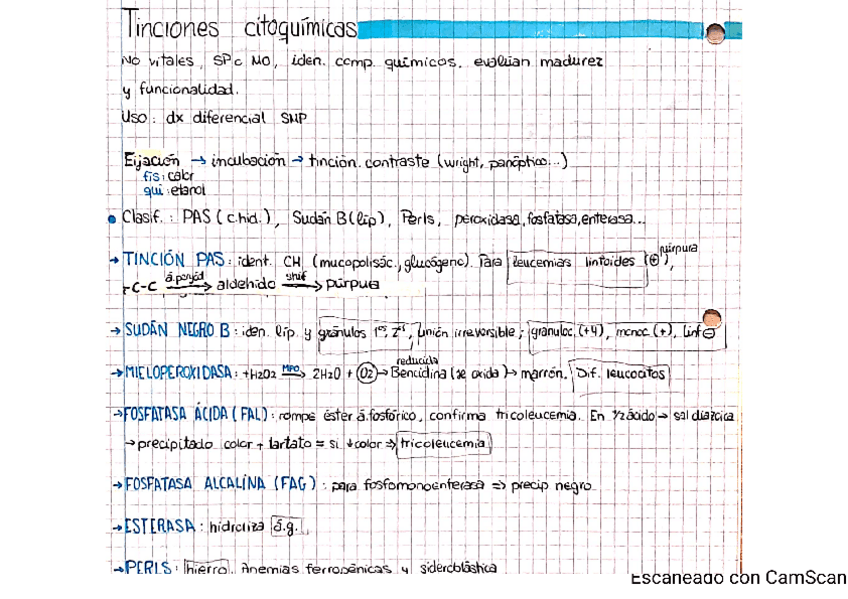 Tinciones citoquímicas
No vitales, SP o MO, iden. comp. químicos. evalúan madurez
y funcionalidad.
Uso: dx diferencial SMP
Fijación → incubación → tinción contraste (wright, panóptico...)
fís: calor
quí: etanol
• Clasif.: PAS (c.hid.), Sudán B (lip), Perls, peroxidasa, fosfatasa, enterasa...
→ TINCIÓN PAS: ident. CH (mucopolisác., glucógeno). Para leucemias linfoides (⊕ púrpura),
r-C-C á.peryód → aldehido shif → púrpura
→ SUDÁN NEGRO B: iden. lip. y gránulos 1os, 2os, unión irreversible; granuloc. (+4), monoc. (+), linf ⊖
→ MIELOPEROXIDASA: +H2O2 MPO → 2H2O + O2 → Bencidina reducida (se oxida) → marrón. Dif. leucocitos
→ FOSFATASA ÁCIDA (FAL): rompe éster á.fosfórico, confirma tricoleucemia. En ½ ácido → sal diazoica
→ precipitado color + tartato = si ↓color ⇒ tricoleucemia
→ FOSFATASA ALCALINA (FAG): para fosfomonoenterasa ⇒ precip negro
→ ESTERASA: hidroliza á.g.
→ PERLS: hierro. Anemias ferropénicas y sideroblástica
Escaneado con CamScan